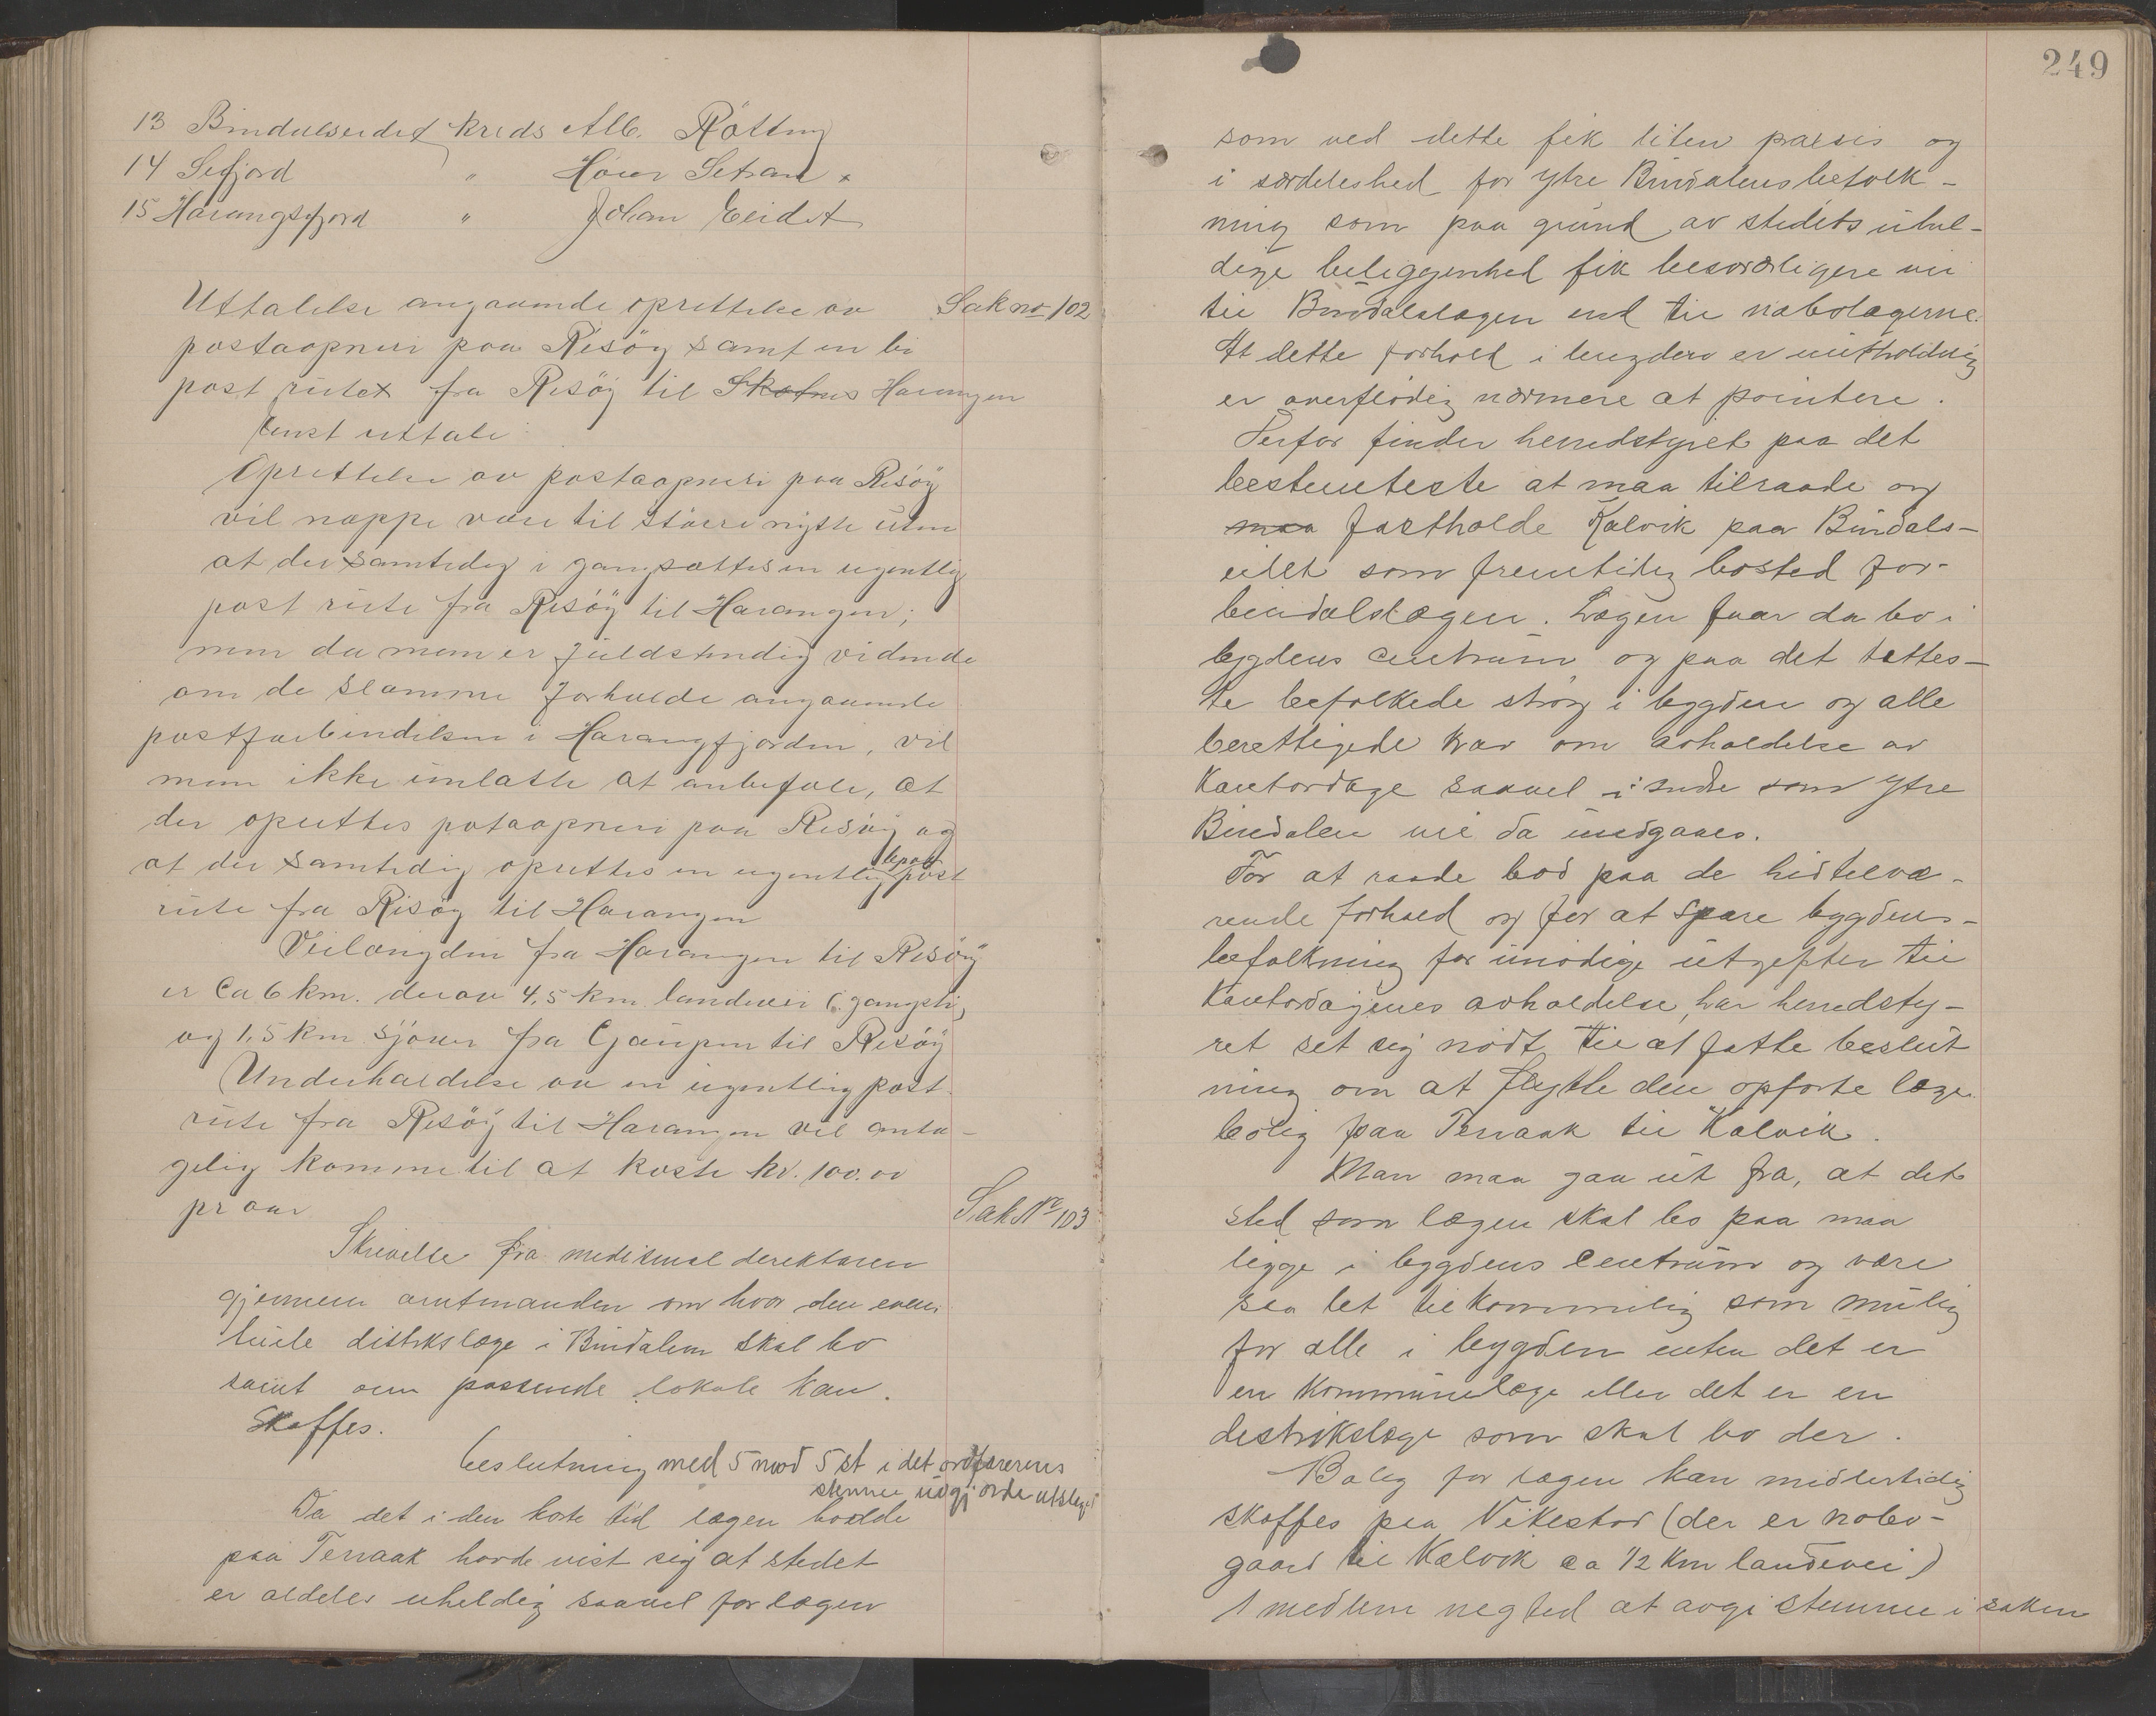 13 Bindalseidet Kreds Alb. Røtting
14 Sefjord " Høier Setran x
15 Harangsfjord " Johan Eidet
Uttalelse angaaende oprettelse av Sak no 102
postaapneri paa Risøy samt en bi
post rutex fra Risøy til Skotnes Harangen
Enst uttale:
Oprettelse av postaapneri paa Risøy
vil nappe være til større nytte uten
at der samtidig i gangsættes en ugentlig
post rute fra Risøy til Harangen;
men da man er fuldstendig vidende
om de slamme forholde angaaende
postforbindelsen i Harangfjorden, vil
man ikke unlatte at anbefale, at
der oprettes potaapneri paa Risøy og
at der samtidig oprettes en ugentlig bipost post
rute fra Risøy til Harangen
Veilængden fra Harangen til Risöy
er Ca 6 km. derav 4,5 km landevei (gangsti)
og 1,5 km sjøvei fra Gaupen til Risøy
Underholdelse av en ugentlig post
rute fra Risøy til Harangen vil anta-
gelig komme til at koste kr. 100.00
pr aar
Sak No 103
Skrivelse fra medisinal derektøren
gjennem amtmanden om hvor den even-
tuele distrkslæge i Bindalen skal bo
samt om passende lokale kan.
Skaffes.
beslutning med 5 mod 5 st i det ordførerens
stemme uvgjorde utslaget
Da det i den korte tid lægen bodde
paa Terraak havde vist sig at stedet
er aldeles uheldig saavel for lægen
249
som ved dette fik liten praxsis og
i særdeleshed for ytre Bindalens befolk-
ning som paa grund av stedets uhel-
dige beliggenhed fik besværligere vei
til Bindalslægen end til nabolægerne.
At dette forhold i lengden er uutholdelig
er overflødig nærmere at pointere.
Derfor finder herredstyret paa det
bestemteste at maa tilraade og
maa fastholde Kalvik paa Bindals-
eidet som fremtidig bosted for-
bindalslægen. Lægen faar da bo i
bygdens centrum og paa det tettes-
te befolkede strøg i bygden og alle
berettigede krav om avholdelse av
Kontordage saavel i indre som ytre
Bindalen vil da undgaaes.
For at raade bod paa de hidtilvæ-
rende forhold og for at spare bygdens-
befolkning for unødige utgifter til
Kontordagenes avholdelse, har herredsty-
ret set sig nødt til at fatte beslut
ning om at flytte den opførte læge
bolig paa Terraak til Kalvik.
Man maa gaa ut fra, at det
sted som lægen skal bo paa maa
ligge i bygdens centrum og være
saa let tilkommelig som mulig
for alle i bygden enten det er
en kommunelæge eller det er en
destrikslæge som skal bo der.
Bolig for lægen kan midlertidig
skaffes paa Vikestad (der er nabo-
gaard til Kalvik ca 1/2 Km landevei)
1 medlem negted at avgi stemme i saken